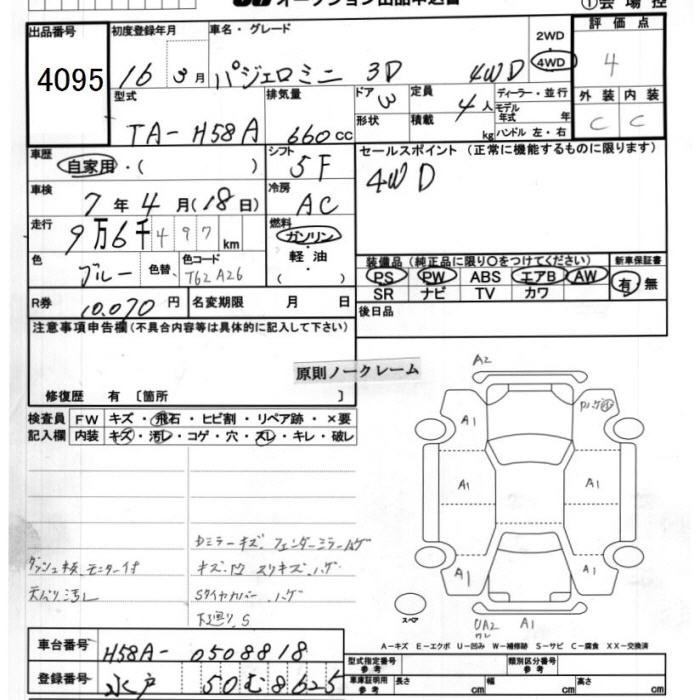 オークション出品申込書
①会場控
出品番号 4095
初度登録年月 16 3月
車名・グレード パジェロミニ 3D 4WD
2WD 4WD
評価点 4
型式 TA-H58A
排気量 660cc
ドア 3
形状
定員 4人
積載 kg
ディーラー・並行
モデル年式 年
ハンドル 左・右
外装 C 内装 C
車歴 自家用・( )
シフト 5F
セールスポイント(正常に機能するものに限ります)
4WD
車検 7年4月(18日)
冷房 AC
走行 9万6千497km
燃料 ガソリン・軽油・( )
色 ブルー 色替 色コード T62 A26
装備品(純正品に限り○をつけてください) 新車保証書
PS PW ABS エアB AW 有・無
SR ナビ TV カワ
R券 10,070円 名変期限 月 日
後日品
注意事項申告欄(不具合内容等は具体的に記入して下さい)
原則ノークレーム
修復歴 有 〔箇所 〕
検査員 FW キズ・飛石・ヒビ割・リペア跡・×要
記入欄 内装 キズ・汚レ・コゲ・穴・スレ・キレ・破レ
ダッシュ板、モニター付
天バリ汚レ
ドミラーキズ、フェンダーミラーハゲ
キズ、凹 スリキズ、ハゲ
Sタイヤカバー ハゲ
下廻り、S
A2
A1
A1
A1
A1
A1
スペア
UA2
A1
A-キズ E-エクボ U-凹み W-補修跡 S-サビ C-腐食 XX-交換済
車台番号 H58A-0508818
登録番号 水戸 50む8625
型式指定番号 参考 類別区分番号 参考
車庫証明用参考 長さ cm 幅 cm 高さ cm